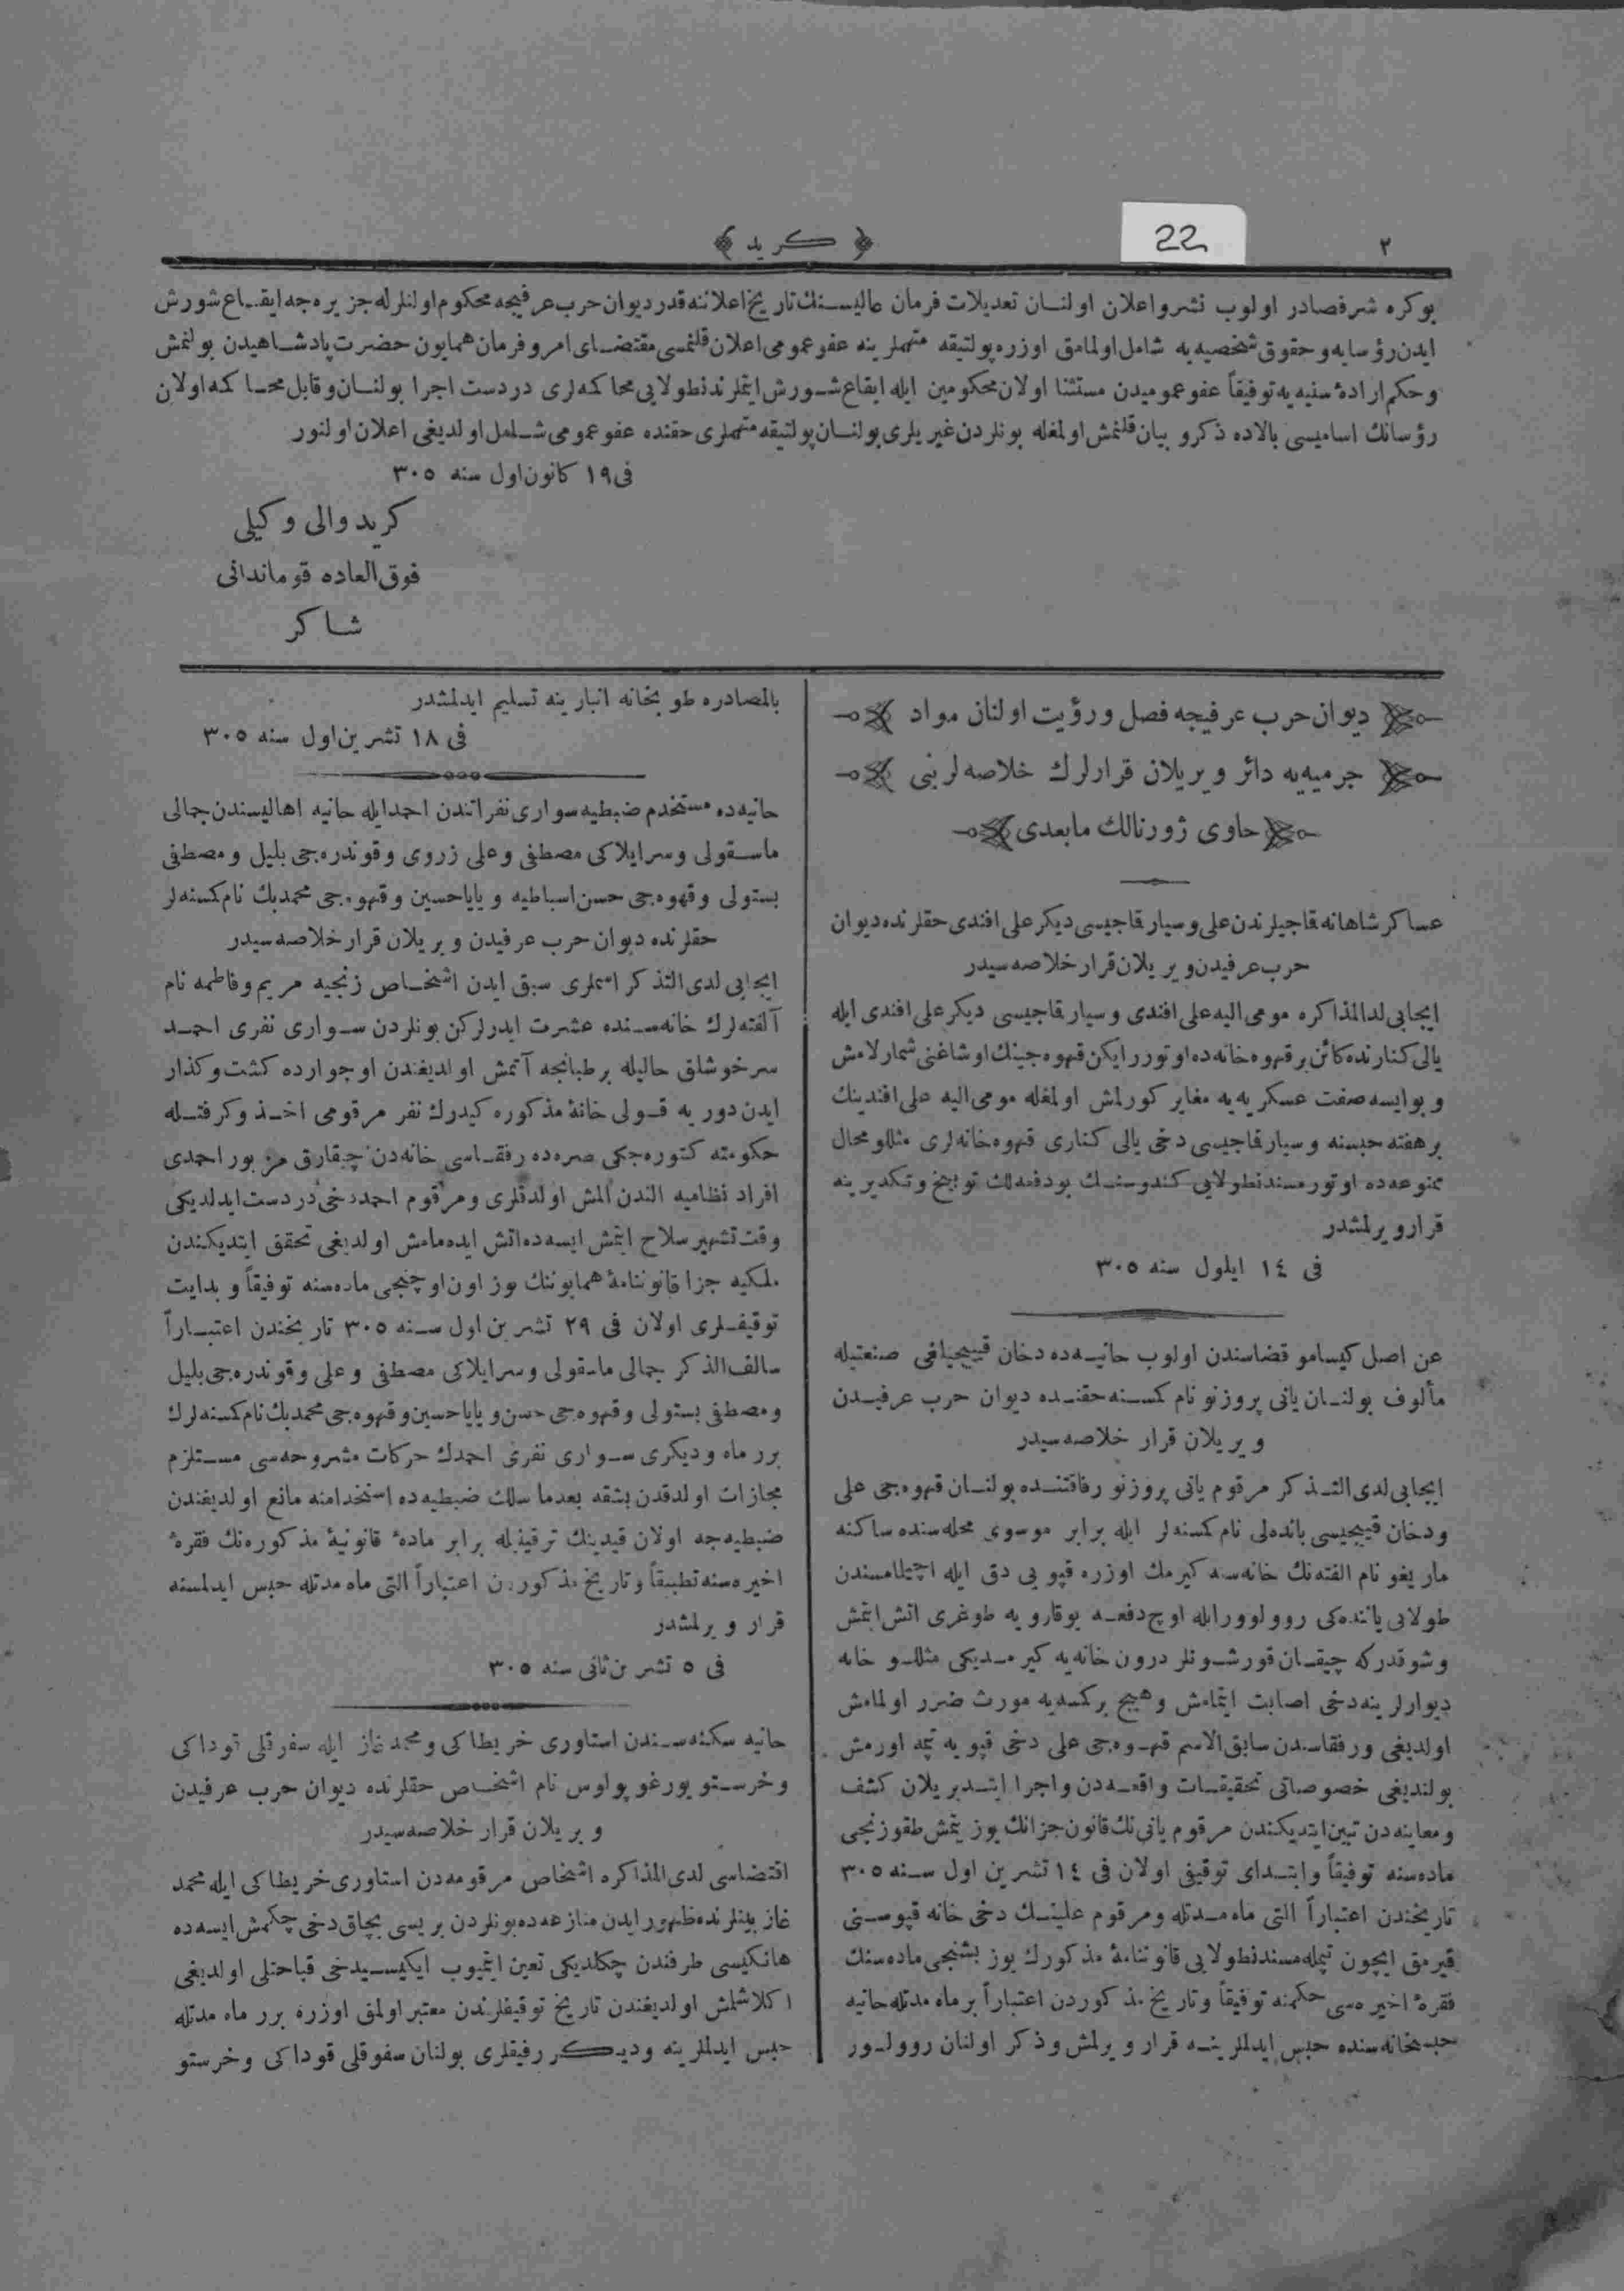 ٢
22
﴿ كريد ﴾
بوكره شرفصادر اولوب نشر و اعلان اولنان تعديلات فرمان عاليسنك تاريخ اعلاننه قدر ديوان حرب عرفيجه محكوم اولنلرله جزيره جه ايقاع شورش
ايدن رؤسايه و حقوق شخصيه يه شامل اولمامق اوزره پولتيقه متهملرينه عفو عمومى اعلان قلنمسى مقتضاى امر و فرمان همايون حضرت پادشاهيدن بولنمش
و حكم ارادۀ سنيه يه توفيقاً عفو عموميدن مستثنا اولان محكومين ايله ايقاع شورش ايتملرندنطولايى محاكمه لرى دردست اجرا بولنان و قابل محاكمه اولان
رؤسانك اساميسى بالاده ذكر و بيان قلنمش اولمغله بونلردن غيريلرى بولنان پولتيقه متهملرى حقنده عفو عمومى شامل اولديغى اعلان اولنور
فى ١٩ كانون اول سنه ٣٠٥
كريد والى وكيلى
فوق العاده قوماندانى
شاكر
ديوان حرب عرفيجه فصل و رؤيت اولنان مواد
جرميه يه دائر ويريلان قرارلرك خلاصه لرينى
حاوى ژورنالك مابعدى
عساكر شاهانه قاجيلرندن على و سيار قاجيسى ديكر على افندى حقلرنده ديوان
حرب عرفيدن ويريلان قرار خلاصه سيدر
ايجابى لدالمذاكره مومى اليه على افندى و سيار قاجيسى ديكر على افندى ايله
يالى كنارنده كائن بر قهوه خانه ده اوتوررايكن قهوه جينك اوشاغنى شمارلامش
و بو ايسه صفت عسكريه يه مغاير كورلمش اولمغله مومى اليه على افندينك
بر هفته حبسنه و سيار قاجيسى دخى يالى كنارى قهوه خانه لرى مثللو محال
ممنوعه ده اوتورمسندنطولايى كندوسنك بودفعه لك توبيخ و تكديرينه
قرار ويرلمشدر
فى ١٤ ايلول سنه ٣٠٥
عن اصل كيسامو قضاسندن اولوب حانيه ده دخان قييجيلغى صنعتيله
مألوف بولنان يانى پروزنو نام كمسنه حقنده ديوان حرب عرفيدن
ويريلان قرار خلاصه سيدر
ايجابى لدى التذكر مرقوم يانى پروزنو رفاقتنده بولنان قهوه جى على
و دخان قييجيسى بانده لى نام كمسنه لر ايله برابر موسوى محله سنده ساكنه
ماريغو نام الفته نك خانه سنه كيرمك اوزره قپويى دق ايله اچيلمامسندن
طولايى يانده كى روولوور ايله اوچ دفعه يوقارويه طوغرى اتش ايتمش
و شو قدركه چيقان قورشونلر درون خانه يه كيرمديكى مثللو خانه
ديوارلرينه دخى اصابت ايتمامش و هيچ بر كمسه يه مورث ضرر اولمامش
اولديغى و رفقاسندن سابق الاسم قهوه جى على دخى قپويه تپمه اورمش
بولنديغى خصوصاتى تحقيقات واقعه دن و اجرا ايتديريلان كشف
و معاينه دن تبين ايتديكندن مرقوم يانى نك قانون جزانك يوز يتمش طقوزنجى
ماده سنه توفيقاً و ابتداى توقيفى اولان فى ١٤ تشرين اول سنه ٣٠٥
تاريخندن اعتباراً التى ماه مدتله و مرقوم علينك دخى خانه قپوسنى
قيرمق ايچون تپمله مسندنطولايى قانوننامۀ مذكورك يوز بشنجى ماده سنك
فقرۀ اخيره سى حكمنه توفيقاً و تاريخ مذكوردن اعتباراً بر ماه مدتله حانيه
حبسخانه سنده حبس ايدلملرينه قرار ويرلمش و ذكر اولنان روولوور
بالمصادره طوبخانه انبارينه تسليم ايدلمشدر
فى ١٨ تشرين اول سنه ٣٠٥
حانيه ده مستخدم ضبطيه سوارى نفراتندن احمد ايله حانيه اهاليسندن جمالى
ماسقولى و سرايلاكى مصطفى و على زروى و قوندره جى بليل و مصطفى
بستولى و قهوه جى حسن اسباطيه و پاپا حسين و قهوه جى محمد بك نام كسنه لر
حقلرنده ديوان حرب عرفيدن ويريلان قرار خلاصه سيدر
ايجابى لدى التذكر اسملرى سبق ايدن اشخاص زنجيه مريم و فاطمه نام
آلفته لرك خانه سنده عشرت ايدرلركن بونلردن سوارى نفرى احمد
سرخوشلق حاليله بر طبانجه آتمش اولديغندن او جوارده كشت و كذار
ايدن دوريه قولى خانۀ مذكوره كيدرك نفر مرقومى اخذ و كرفتله
حكومته كتوره جكى صره ده رفقاسى خانه دن چيقارق مزبور احمدى
افراد نظاميه الندن المش اولدقلرى و مرقوم احمد دخى دردست ايدلديكى
وقت تشهير سلاح ايتمش ايسه ده اتش ايده مامش اولديغى تحقق ايتديكندن
ملكيه جزا قانوننامۀ همايوننك يوز اون اوچنجى ماده سنه توفيقاً و بدايت
توقيفلرى اولان فى ٢٩ تشرين اول سنه ٣٠٥ تاريخندن اعتباراً
سالف الذكر جمالى ماسقولى و سرايلاكى مصطفى و على و قوندره جى بليل
و مصطفى بستولى و قهوه جى حسن و پاپا حسين و قهوه جى محمد بك نام كسنه لرك
برر ماه و ديكرى سوارى نفرى احمدك حركات مشروحه سى مستلزم
مجازات اولدقدن بشقه بعدما سلك ضبطيه ده استخدامنه مانع اولديغندن
ضبطيه جه اولان قيدينك ترقينيله برابر مادۀ قانونيۀ مذكوره نك فقرۀ
اخيره سنه تطبيقاً و تاريخ مذكوردن اعتباراً التى ماه مدتله حبس ايدلمسنه
قرار ويرلمشدر
فى ٥ تشرين ثانى سنه ٣٠٥
حانيه سكنه سندن استاورى خريطاكى و محمد غاز ايله سفرقلى توداكى
و خرستو يورغو پولوس نام اشخاص حقلرنده ديوان حرب عرفيدن
ويريلان قرار خلاصه سيدر
اقتضاسى لدى المذاكره اشخاص مرقومه دن استاورى خريطاكى ايله محمد
غاز بينلرنده ظهور ايدن منازعه ده بونلردن بريسى بچاق دخى چكمش ايسه ده
هانكيسى طرفندن چكلديكى تعين ايتميوب ايكيسيدخى قباحتلى اولديغى
اكلاشلمش اولديغندن تاريخ توقيفلرندن معتبر اولمق اوزره برر ماه مدتله
حبس ايدلملرينه و ديكر رفيقلرى بولنان سفوقلى قوداكى و خرستو